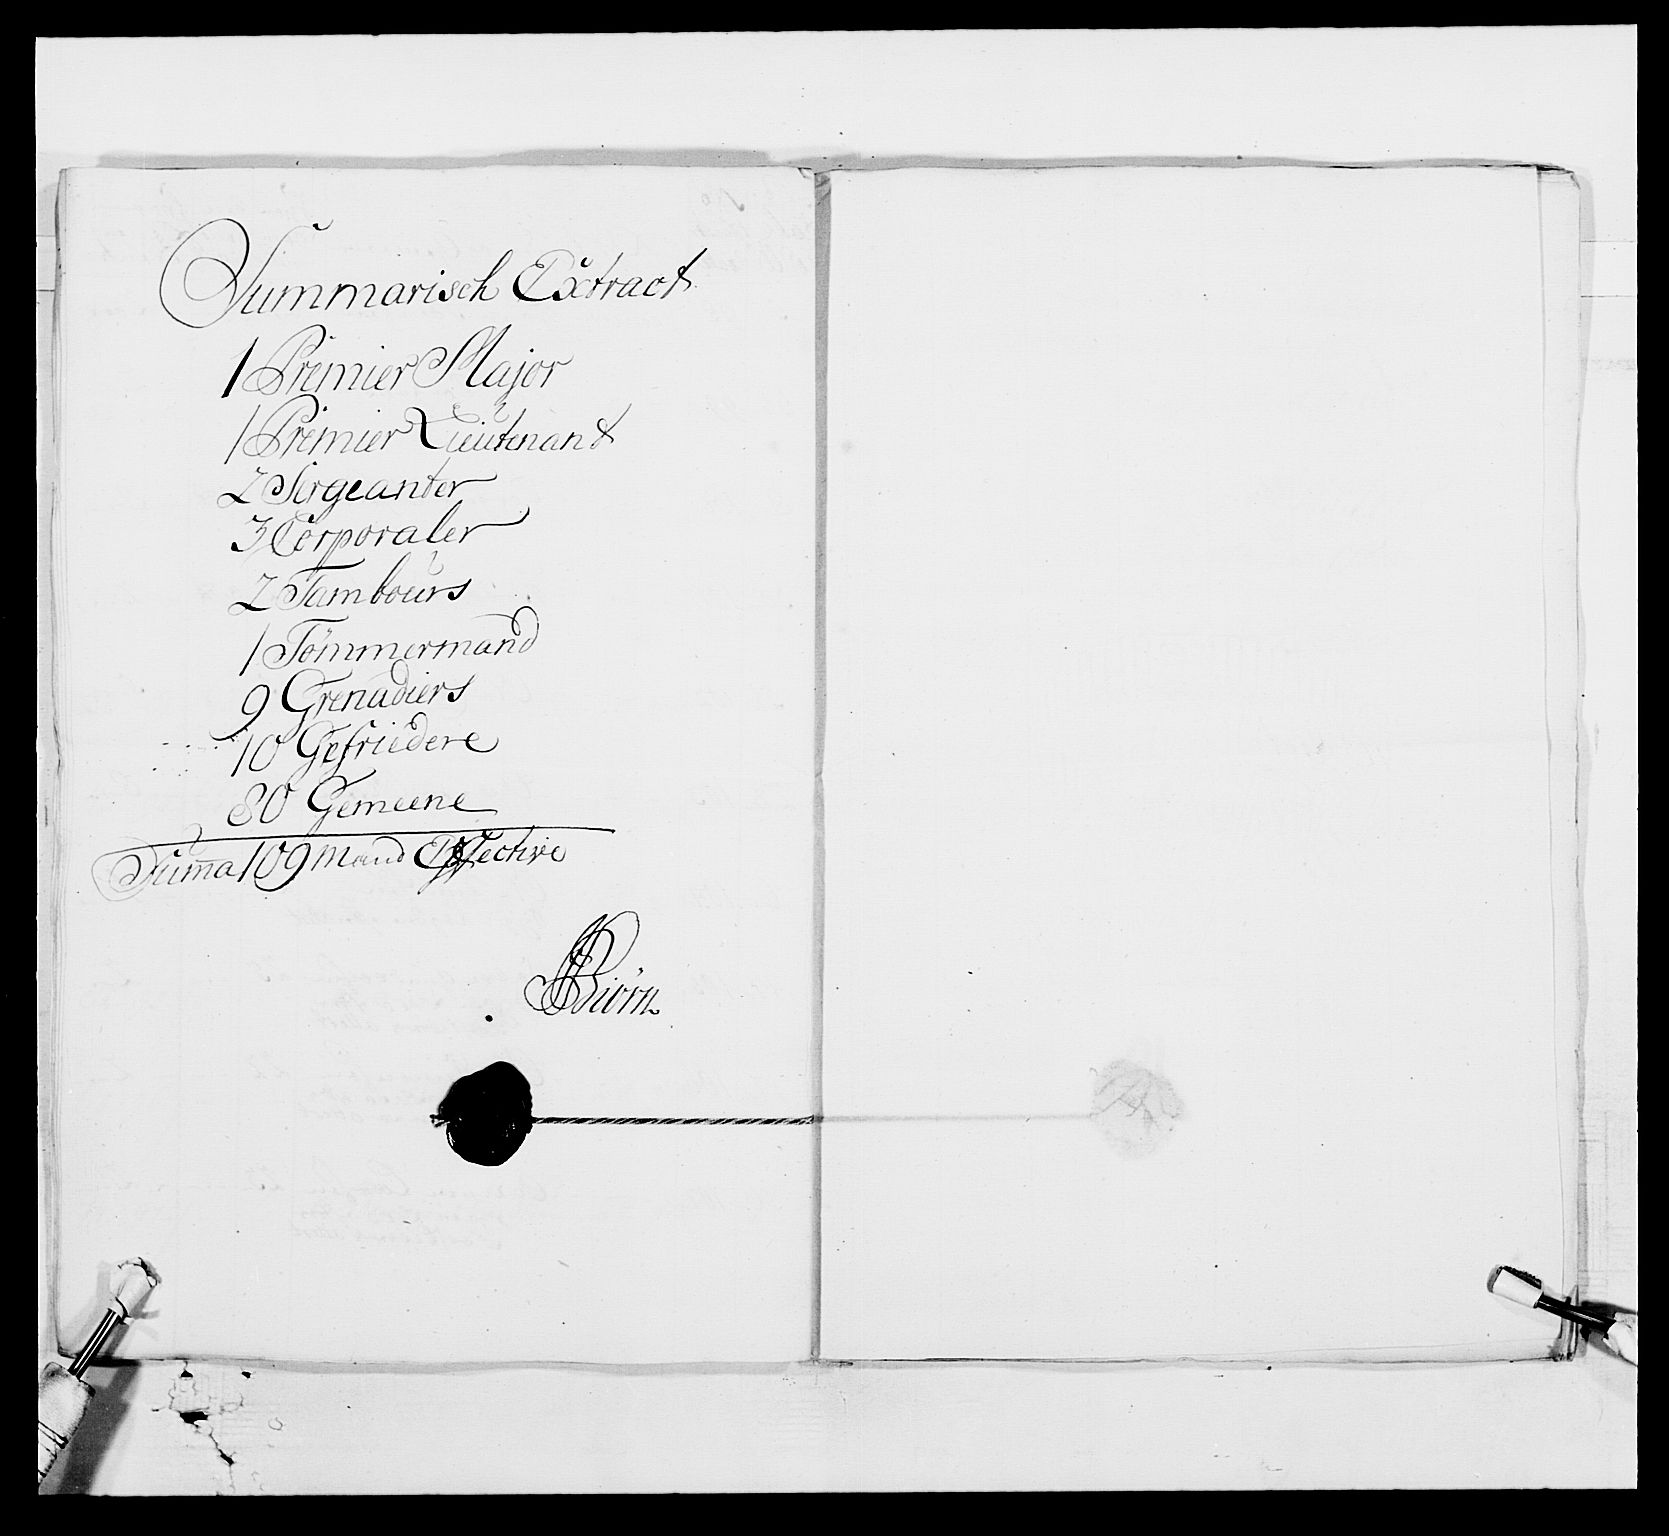 Summarisch Extract
1 Premier Major
1 Premier Lieutenant
2 Sergeanter
3 Corporaler
2 Tambours
1 Tömmermand
9 Grenadiers
10 Gefriedere
80 Gemeene
Sum̅a 109 Mand Effective
Biörn